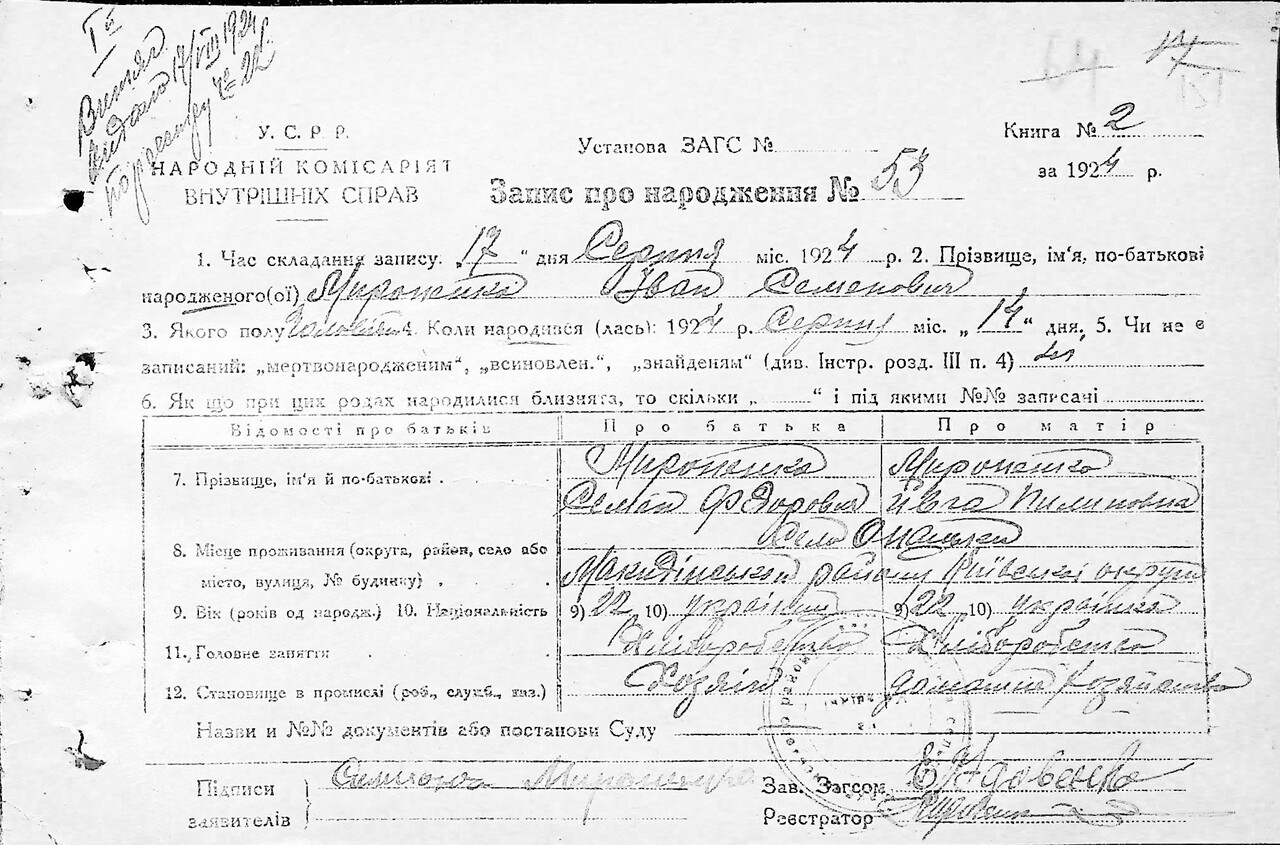 Iа
Витяг
видано 17/VIII 1924
по реєстру № 22
64 17
151
У. С. Р. Р.
НАРОДНІЙ КОМІСАРІЯТ
ВНУТРІШНІХ СПРАВ
Установа ЗАГС №
Книга № 2
за 1924 р.
Запис про народження № 53
1. Час складання запису. „17“ дня Серпня міс. 1924 р. 2. Прізвище, ім'я, по-батькові
народженого(ої) Мироненко Іван Семенович
3. Якого полу Чоловічи 4. Коли народився (лась): 1924 р. Серпня міс. „14“ дня. 5. Чи не є
записаний: „мертвонародженим“, „всиновлен.“, „знайденям“ (див. Інстр. розд. III п. 4)
6. Як що при цих родах народилися близнята, то скільки „ “ і під якими №№ записачі
Відомості про батьків Про батька Про матір
7. Прізвище, ім'я й по-батькові . Мироненко Мироненко
Семен Федорович Ивга Пилиповна
8. Місце проживання (округа, район, село або село
місто, вулиця, № будинку) . Макидінський района Київської округи
9. Вік (років од народж.) 10. Національність 9) 22 10) українец 9) 22 10) українка
11. Головне заняття Хліборобство Хліборобство
12. Становище в промислі (роб., служб., хаз.) Хозяїн домашнє хозяйство
Назви и №№ документів або постанови Суду
Підписи
заявителів
Зав. Загсом
Реєстратор